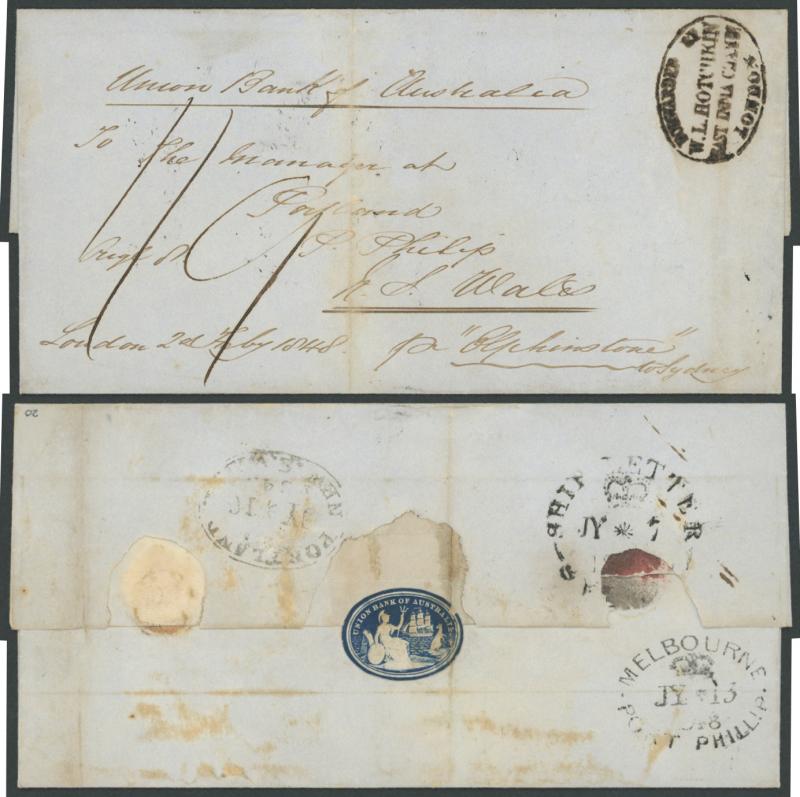 Union Bank of Australia
To the manager at
Portland
P. Philip
N. S. Wales
London 2d Feby 1848.
pr "Elphinstone"
to Sydney
FORWARDED BY
W.L. HOTCHKIN
EAST INDIA
LONDON
20
PORTLAND
SHIP LETTER
JY * 7
UNION BANK OF AUSTRALIA
MELBOURNE
JY * 13
1848
PORT PHILLIP